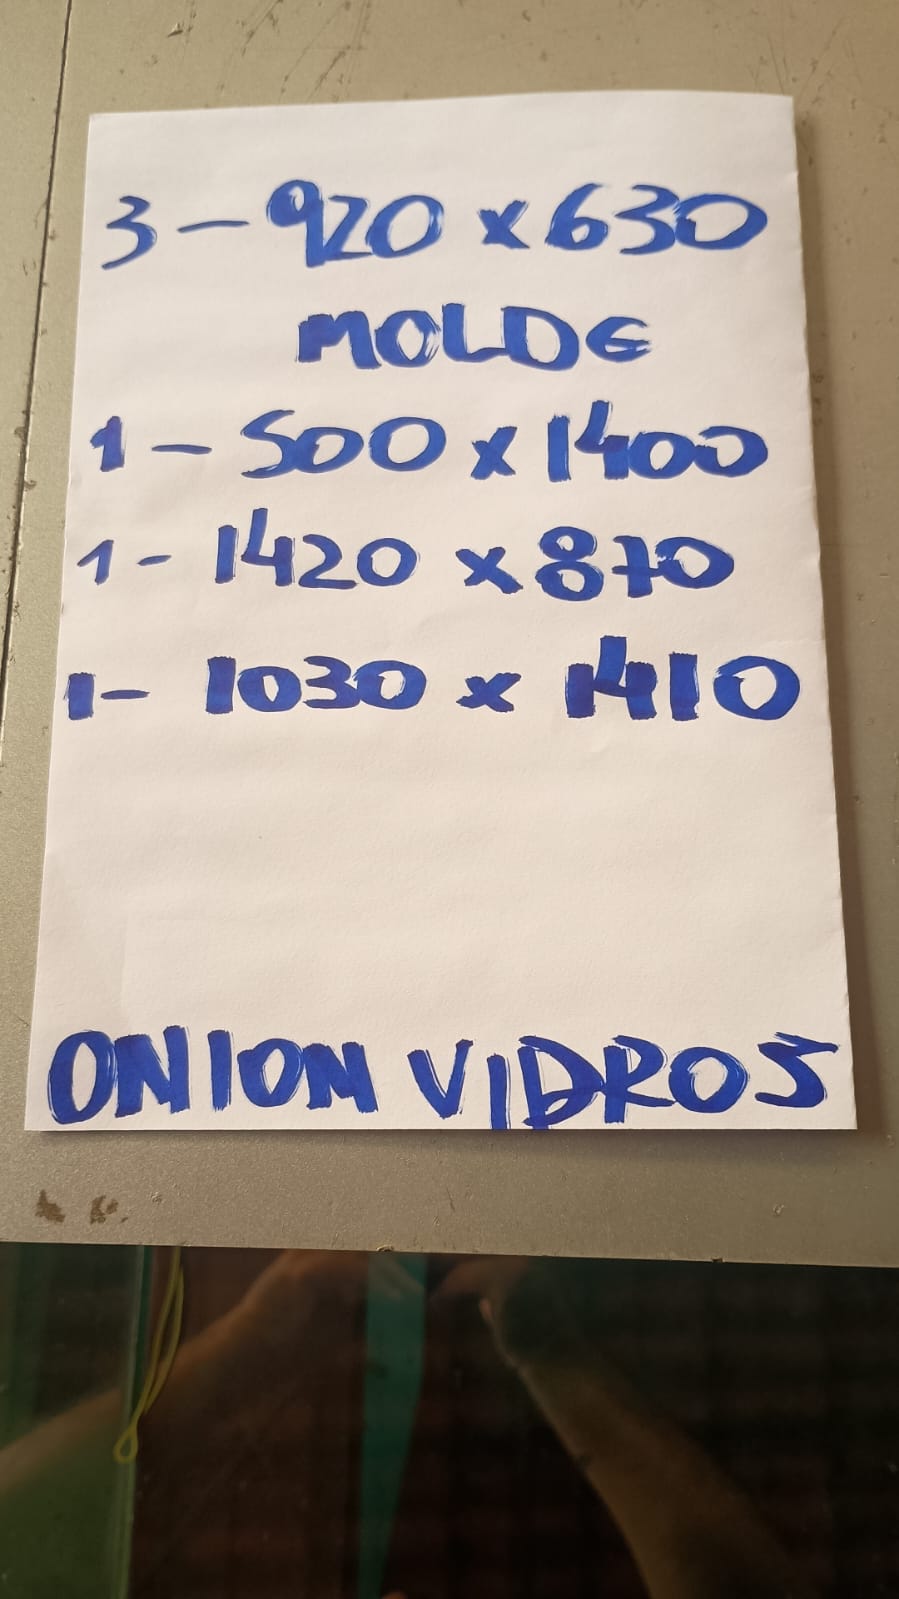 3 - 920 x 630
MOLDE
1 - 500 x 1400
1 - 1420 x 870
1 - 1030 x 1410
ONION VIDROS